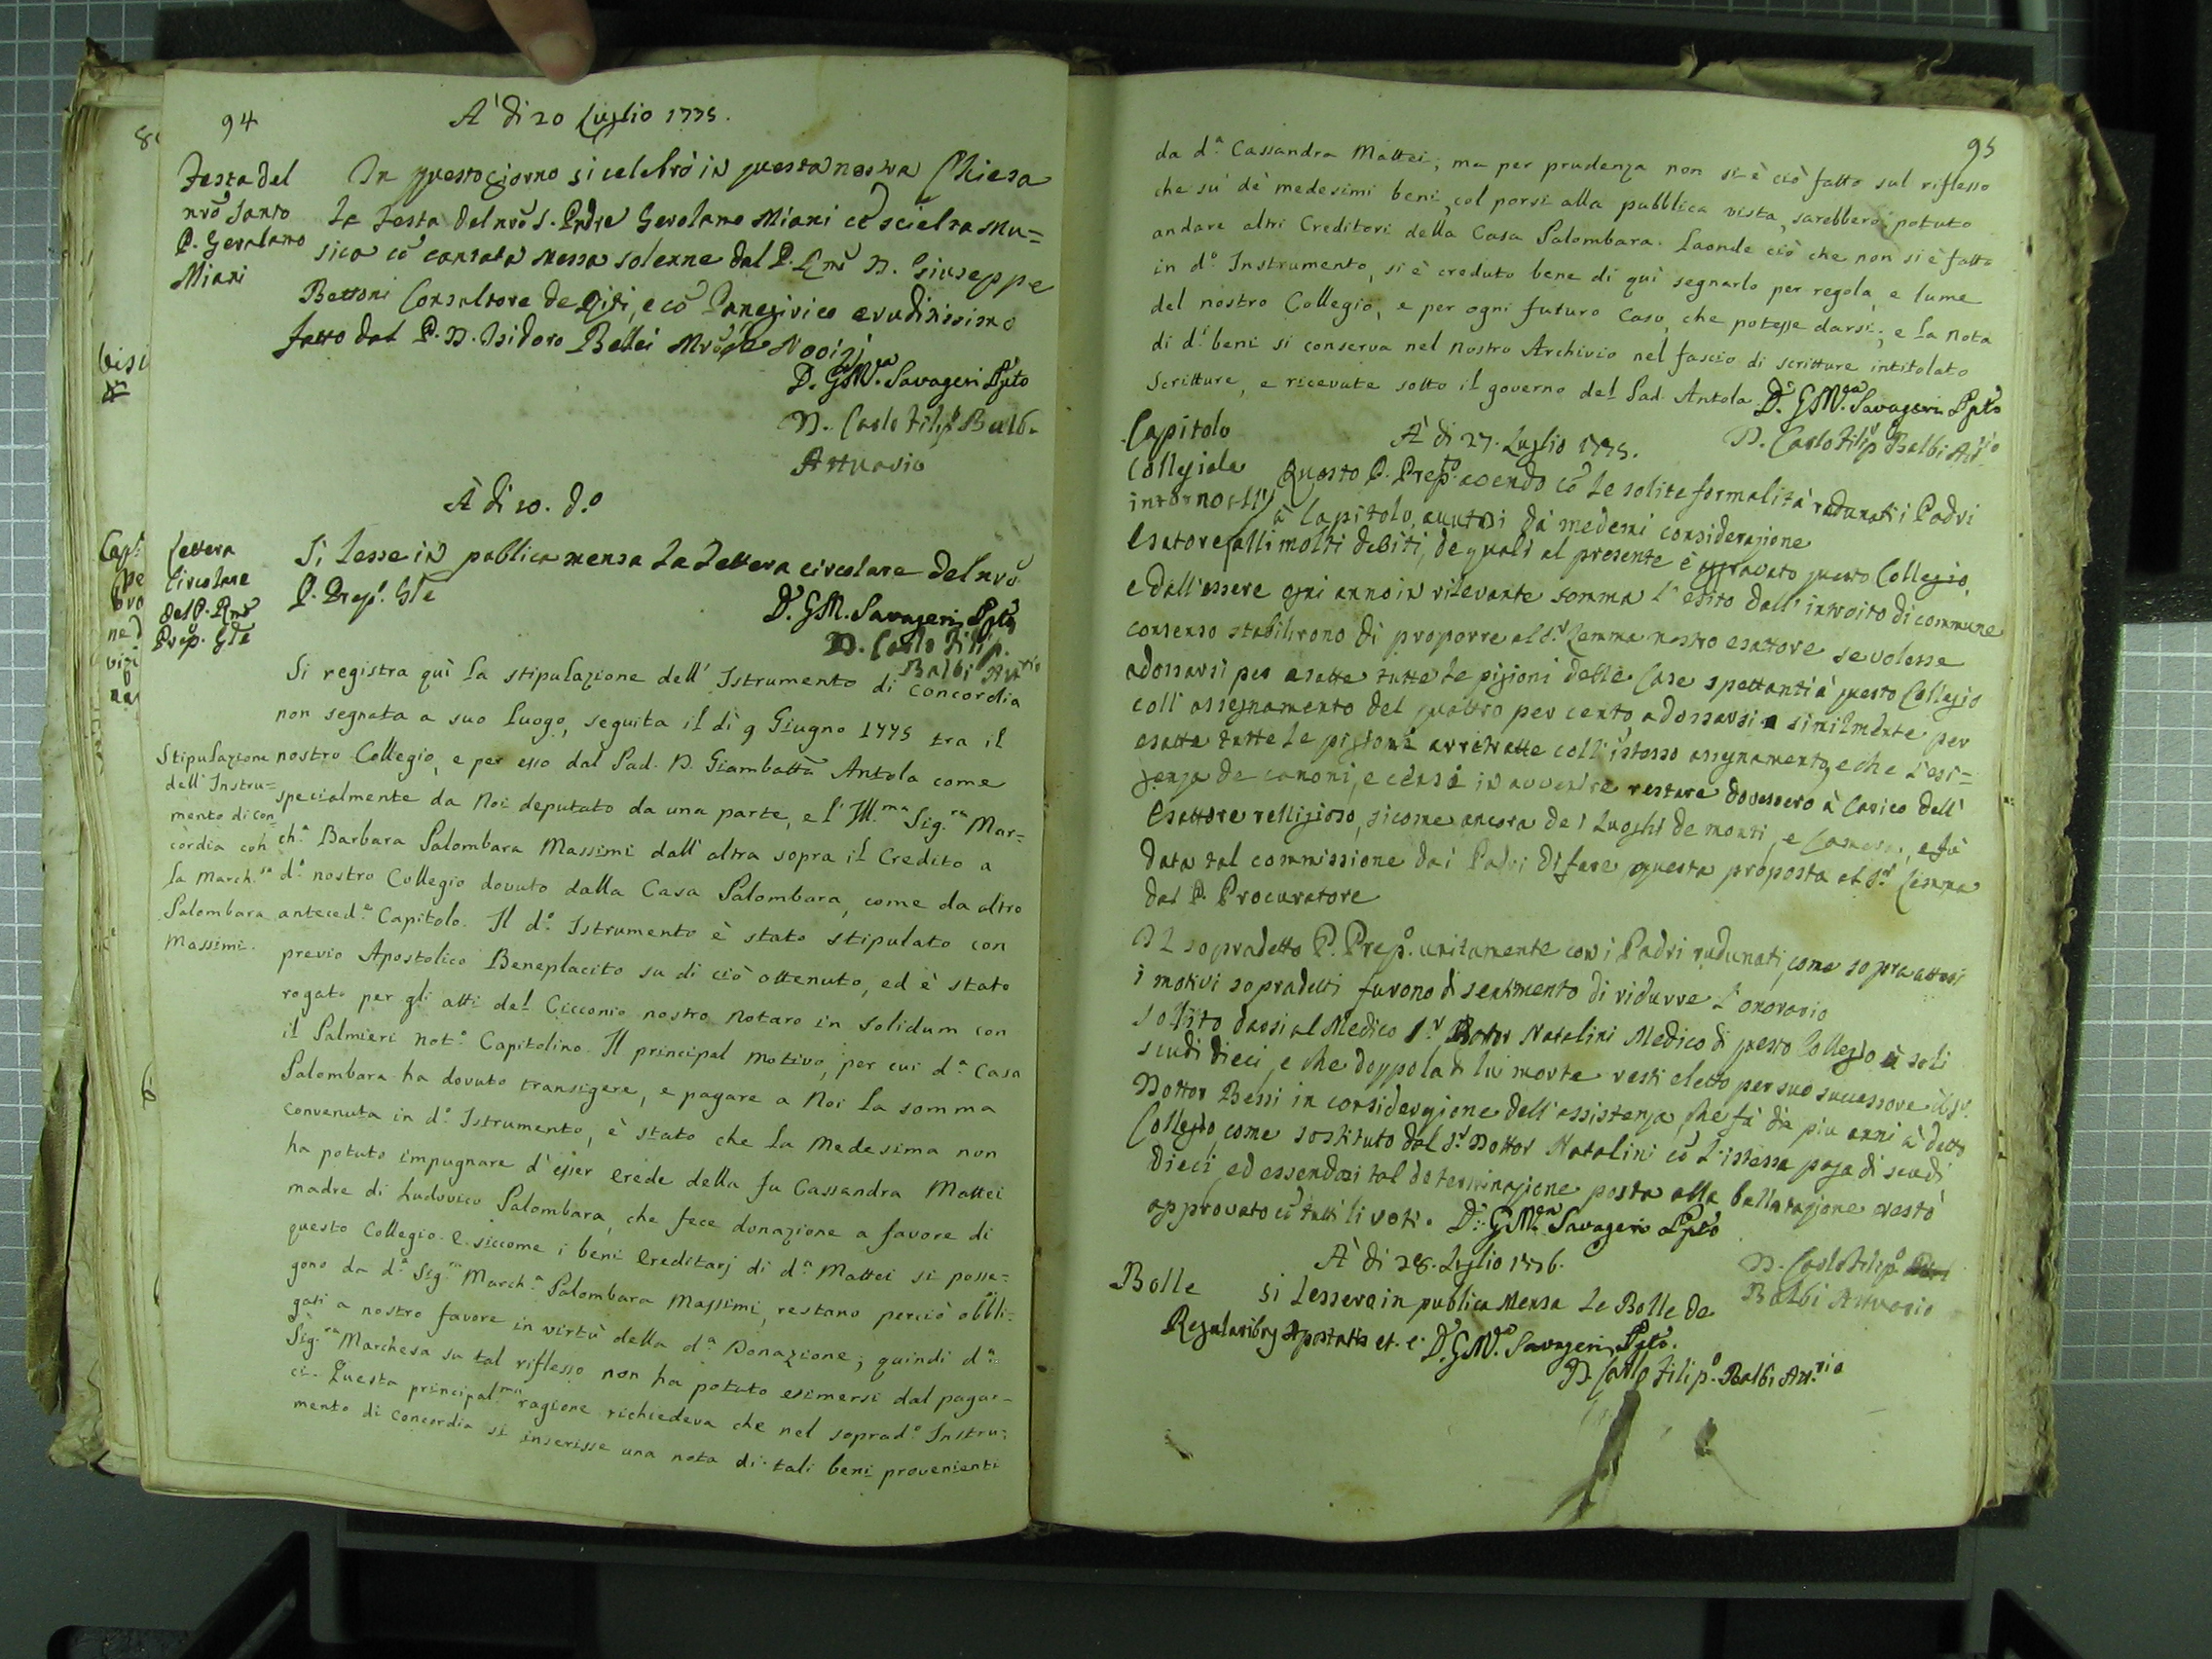 94
A' di 20 Luglio 1775.
Festa del
nrõ Santo
P. Gerolamo
Miani
In questo giorno si celebrò in questa nostra Chiesa
la Festa del nrõ S. Padre Gerolamo Miani cõ scielta Mu=
sica cõ cantata Messa solenne dal P. Rmõ D. Giuseppe
Bettoni Consultore de Riti, e cõ Panegirico eruditissimo
fatto dal P. D. Isidoro Bellei Mrõ de Novizi
D. G. M.a Savageri Ppto
D. Carlo Filip.o Balb.
Attuario
À di 20. d.o
Lettera
Circolare
del P. Rmõ
Prep. Gle
Si lesse in publica mensa la lettera circolare del nrõ
P. Prep.t Gle
D. G. M. Savageri Ppto
D. Carlo Filip.
Balbi Att.rio
Si registra quì la stipulazione dell' Istrumento di concordia
non segnata a suo luogo, seguita il dì 9 Giugno 1775 tra il
Stipulazione
dell' Instru=
mento di con=
cordia con
la March.sa
Palombara
Massimi.
nostro Collegio, e per esso dal Pad. D. Giambattã Antola come
specialmente da Noi deputato da una parte, e l' Ill.ma Sig.ra Mar=
ch.a Barbara Palombara Massimi dall' altra sopra il Credito a
d.o nostro Collegio dovuto dalla Casa Palombara, come da altro
anteced.e Capitolo. Il d.o Istrumento è stato stipulato con
previo Apostolico Beneplacito su di ciò ottenuto, ed è stato
rogato per gli atti del Cicconio nostro Notaro in solidum con
il Palmieri Not.o Capitolino. Il principal motivo, per cui d.a Casa
Palombara ha dovuto transigere, e pagare a Noi la somma
convenuta in d.o Istrumento, è stato che la Medesima non
ha potuto impugnare d'esser erede della fu Cassandra Mattei
madre di Ludovico Palombara, che fece donazione a favore di
questo Collegio. E siccome i beni ereditarj di d.a Mattei si posse=
gono da d.a Sig.ra March.a Palombara Massimi, restano perciò obbli=
gati a nostro favore in virtù della d.a Donazione; quindi d.a
Sig.ra Marchesa su tal riflesso non ha potuto esimersi dal pagar=
ci. Questa principal.ma ragione richiedeva che nel soprad.o Instru=
mento di concordia si inserisse una nota di tali beni provenienti
95
da d.a Cassandra Mattei; ma per prudenza non si è ciò fatto sul riflesso
che su' de' medesimi beni, col porsi alla pubblica vista, sarebbero potuto
andare altri Creditori della Casa Palombara. Laonde ciò che non si è fatto
in d.o Instrumento, si è creduto bene di quì segnarlo per regola, e lume
del nostro Collegio, e per ogni futuro caso, che potesse darsi; e la nota
di d.i beni si conserva nel nostro Archivio nel fascio di scritture intitolato
Scritture, e ricevute sotto il governo del Pad. Antola. D. G. M.a Savageri Ppto
D. Carlo Filip.o Balbi Att.o
Capitolo
Collegiale
intorno all'
Esatore
A' di 27. Luglio 1775.
Questo P. Prep.to avendo cõ le solite formalità radunati i Padri
à Capitolo, avutasi dà medemi considerazione
alli molti debiti, de quali al presente è aggravato questo Collegio,
e dall' essere ogni anno in rilevante somma l' esito dall' introito di commune
consenso stabilirono di proporre al S.r Lemma nostro esattore se volesse
adossarsi per esatte tutte le pigioni delle Case spettanti à questo Collegio
coll' assegnamento del quattro per cento, adossarsi similmente per
esatte tutte le pigioni arretratte coll' istesso assegnamento, e che l' esi=
genza de canoni, e censi in avvenire restare dovessero à Carico dell'
Esattore relligioso, sicome ancora dei Luoghi de monti, e Camera, e fù
data tal commissione dai Padri di fare questa proposta al S.r Lemma
dal P. Procuratore
Il sopradetto P. Prep.o unitamente con i Padri radunati come sopra attesi
i motivi sopradetti furono di sentimento di ridurre l' onorario
solito darsi al Medico S.r Dottor Natalini Medico di questo Collegio à soli
scudi dieci, e che doppo la di lui morte resti eletto per suo successore il S.r
Dottor Bessi in considerazione dell' assistenza, che fà dà più anni à detto
Collegio, come sostituto dal S.r Dottor Natalini cõ l' istessa paga di scudi
dieci, ed essendosi tal determinazione posta alla ballotazione restò
approvato cõ tutti li voti. D. G. M.a Savageri Ppto
D. Carlo Filip.o
Balbi Attuario
À di 28. Luglio 1776.
Bolle
Si lessero in publica Mensa le Bolle de
Regularibus Apostatis et. c. D. G. M.a Savageri Ppto.
D. Carlo Filip.o Balbi Att.rio